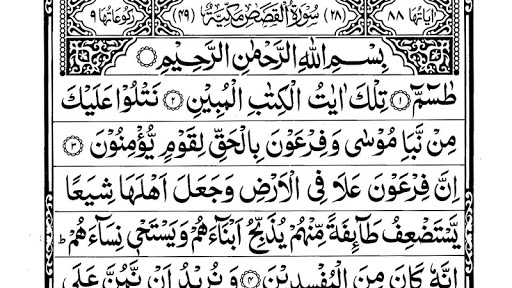 اٰیاتها ۸۸ (۲۸) سُوْرَةُ الْقَصَصِ مَكِّيَّةٌ (۴۹) رکوعاتها ۹
بِسْمِ اللهِ الرَّحْمٰنِ الرَّحِيْمِ
طٰسٓمّٓ ۱ تِلْكَ اٰيٰتُ الْكِتٰبِ الْمُبِيْنِ ۲ نَتْلُوْا عَلَيْكَ
مِنْ نَّبَاِ مُوْسٰى وَفِرْعَوْنَ بِالْحَقِّ لِقَوْمٍ يُّؤْمِنُوْنَ ۳
اِنَّ فِرْعَوْنَ عَلَا فِى الْاَرْضِ وَجَعَلَ اَهْلَهَا شِيَعًا
يَّسْتَضْعِفُ طَآئِفَةً مِّنْهُمْ يُذَبِّحُ اَبْنَآءَهُمْ وَيَسْتَحْىٖ نِسَآءَهُمْ ؕ
اِنَّهٗ كَانَ مِنَ الْمُفْسِدِيْنَ ۴ وَنُرِيْدُ اَنْ نَّمُنَّ عَلَى